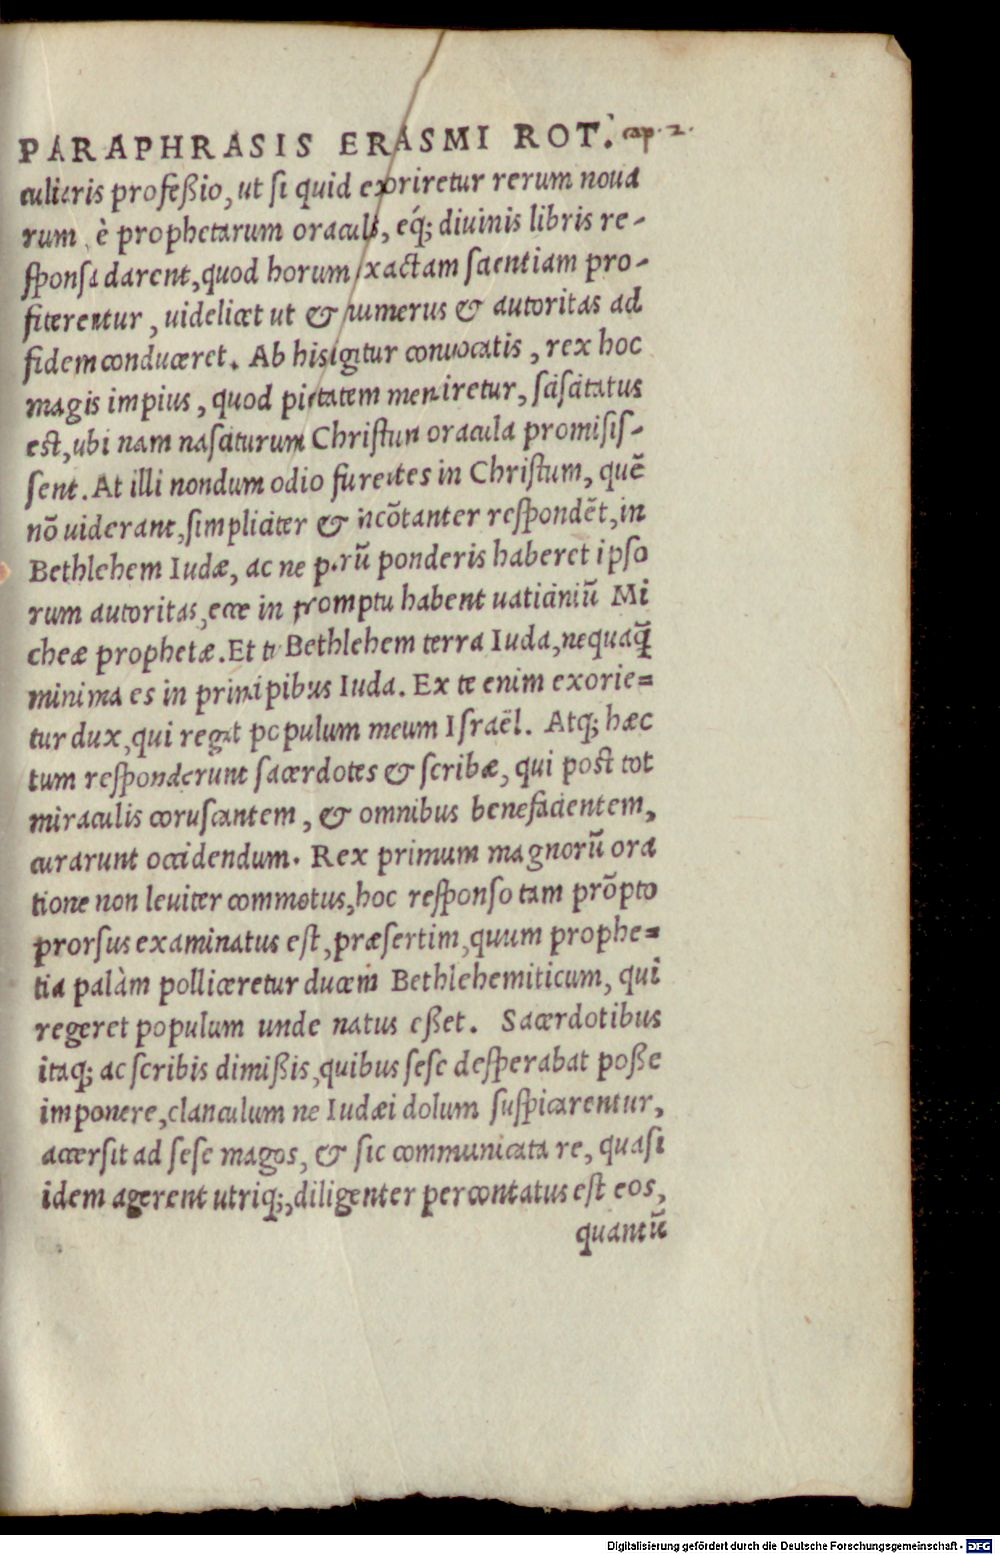 PARAPHRASIS ERASMI ROT. cap. 2.
culiaris profeßio, ut si quid exoriretur rerum noua
rum, è prophetarum oraculis, eq́; diuinis libris re-
sponsa darent, quod horum exactam scientiam pro-
fiterentur, uidelicet ut & numerus & autoritas ad
fidem conduceret. Ab his igitur conuocatis, rex hoc
magis impius, quod pietatem mentiretur, sciscitatus
est, ubi nam nasciturum Christum oracula promisis-
sent. At illi nondum odio furentes in Christum, quē
nō uiderant, simpliciter & incōtanter respondēt, in
Bethlehem Iudæ, ac ne parū ponderis haberet ipso
rum autoritas, ecce in promptu habent uaticiniū Mi
cheæ prophetæ. Et tu Bethlehem terra Iuda, nequaq̄
minima es in principibus Iuda. Ex te enim exorie=
tur dux, qui regat populum meum Israël. Atq; hæc
tum responderunt sacerdotes & scribæ, qui post tot
miraculis coruscantem, & omnibus benefacientem,
curarunt occidendum. Rex primum magnorū ora
tione non leuiter commotus, hoc responso tam prōpto
prorsus examinatus est, præsertim, quum prophe=
tia palàm polliceretur ducem Bethlehemiticum, qui
regeret populum unde natus eßet. Sacerdotibus
itaq; ac scribis dimißis, quibus sese desperabat poße
imponere, clanculum ne Iudæi dolum suspicarentur,
accersit ad sese magos, & sic communicata re, quasi
idem agerent utriq;, diligenter percontatus est eos,
quantū
Digitalisierung gefördert durch die Deutsche Forschungsgemeinschaft - DFG